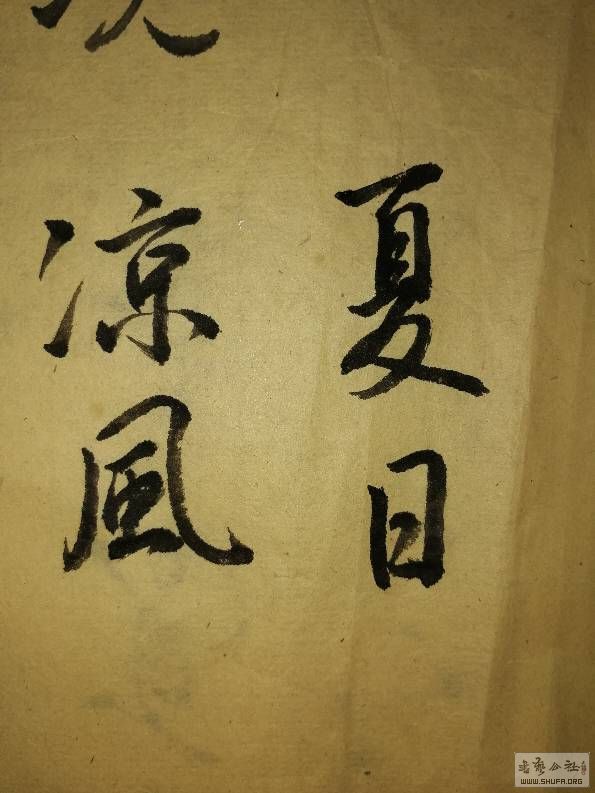 夏日
凉風
书艺公社
WWW.SHUFA.ORG